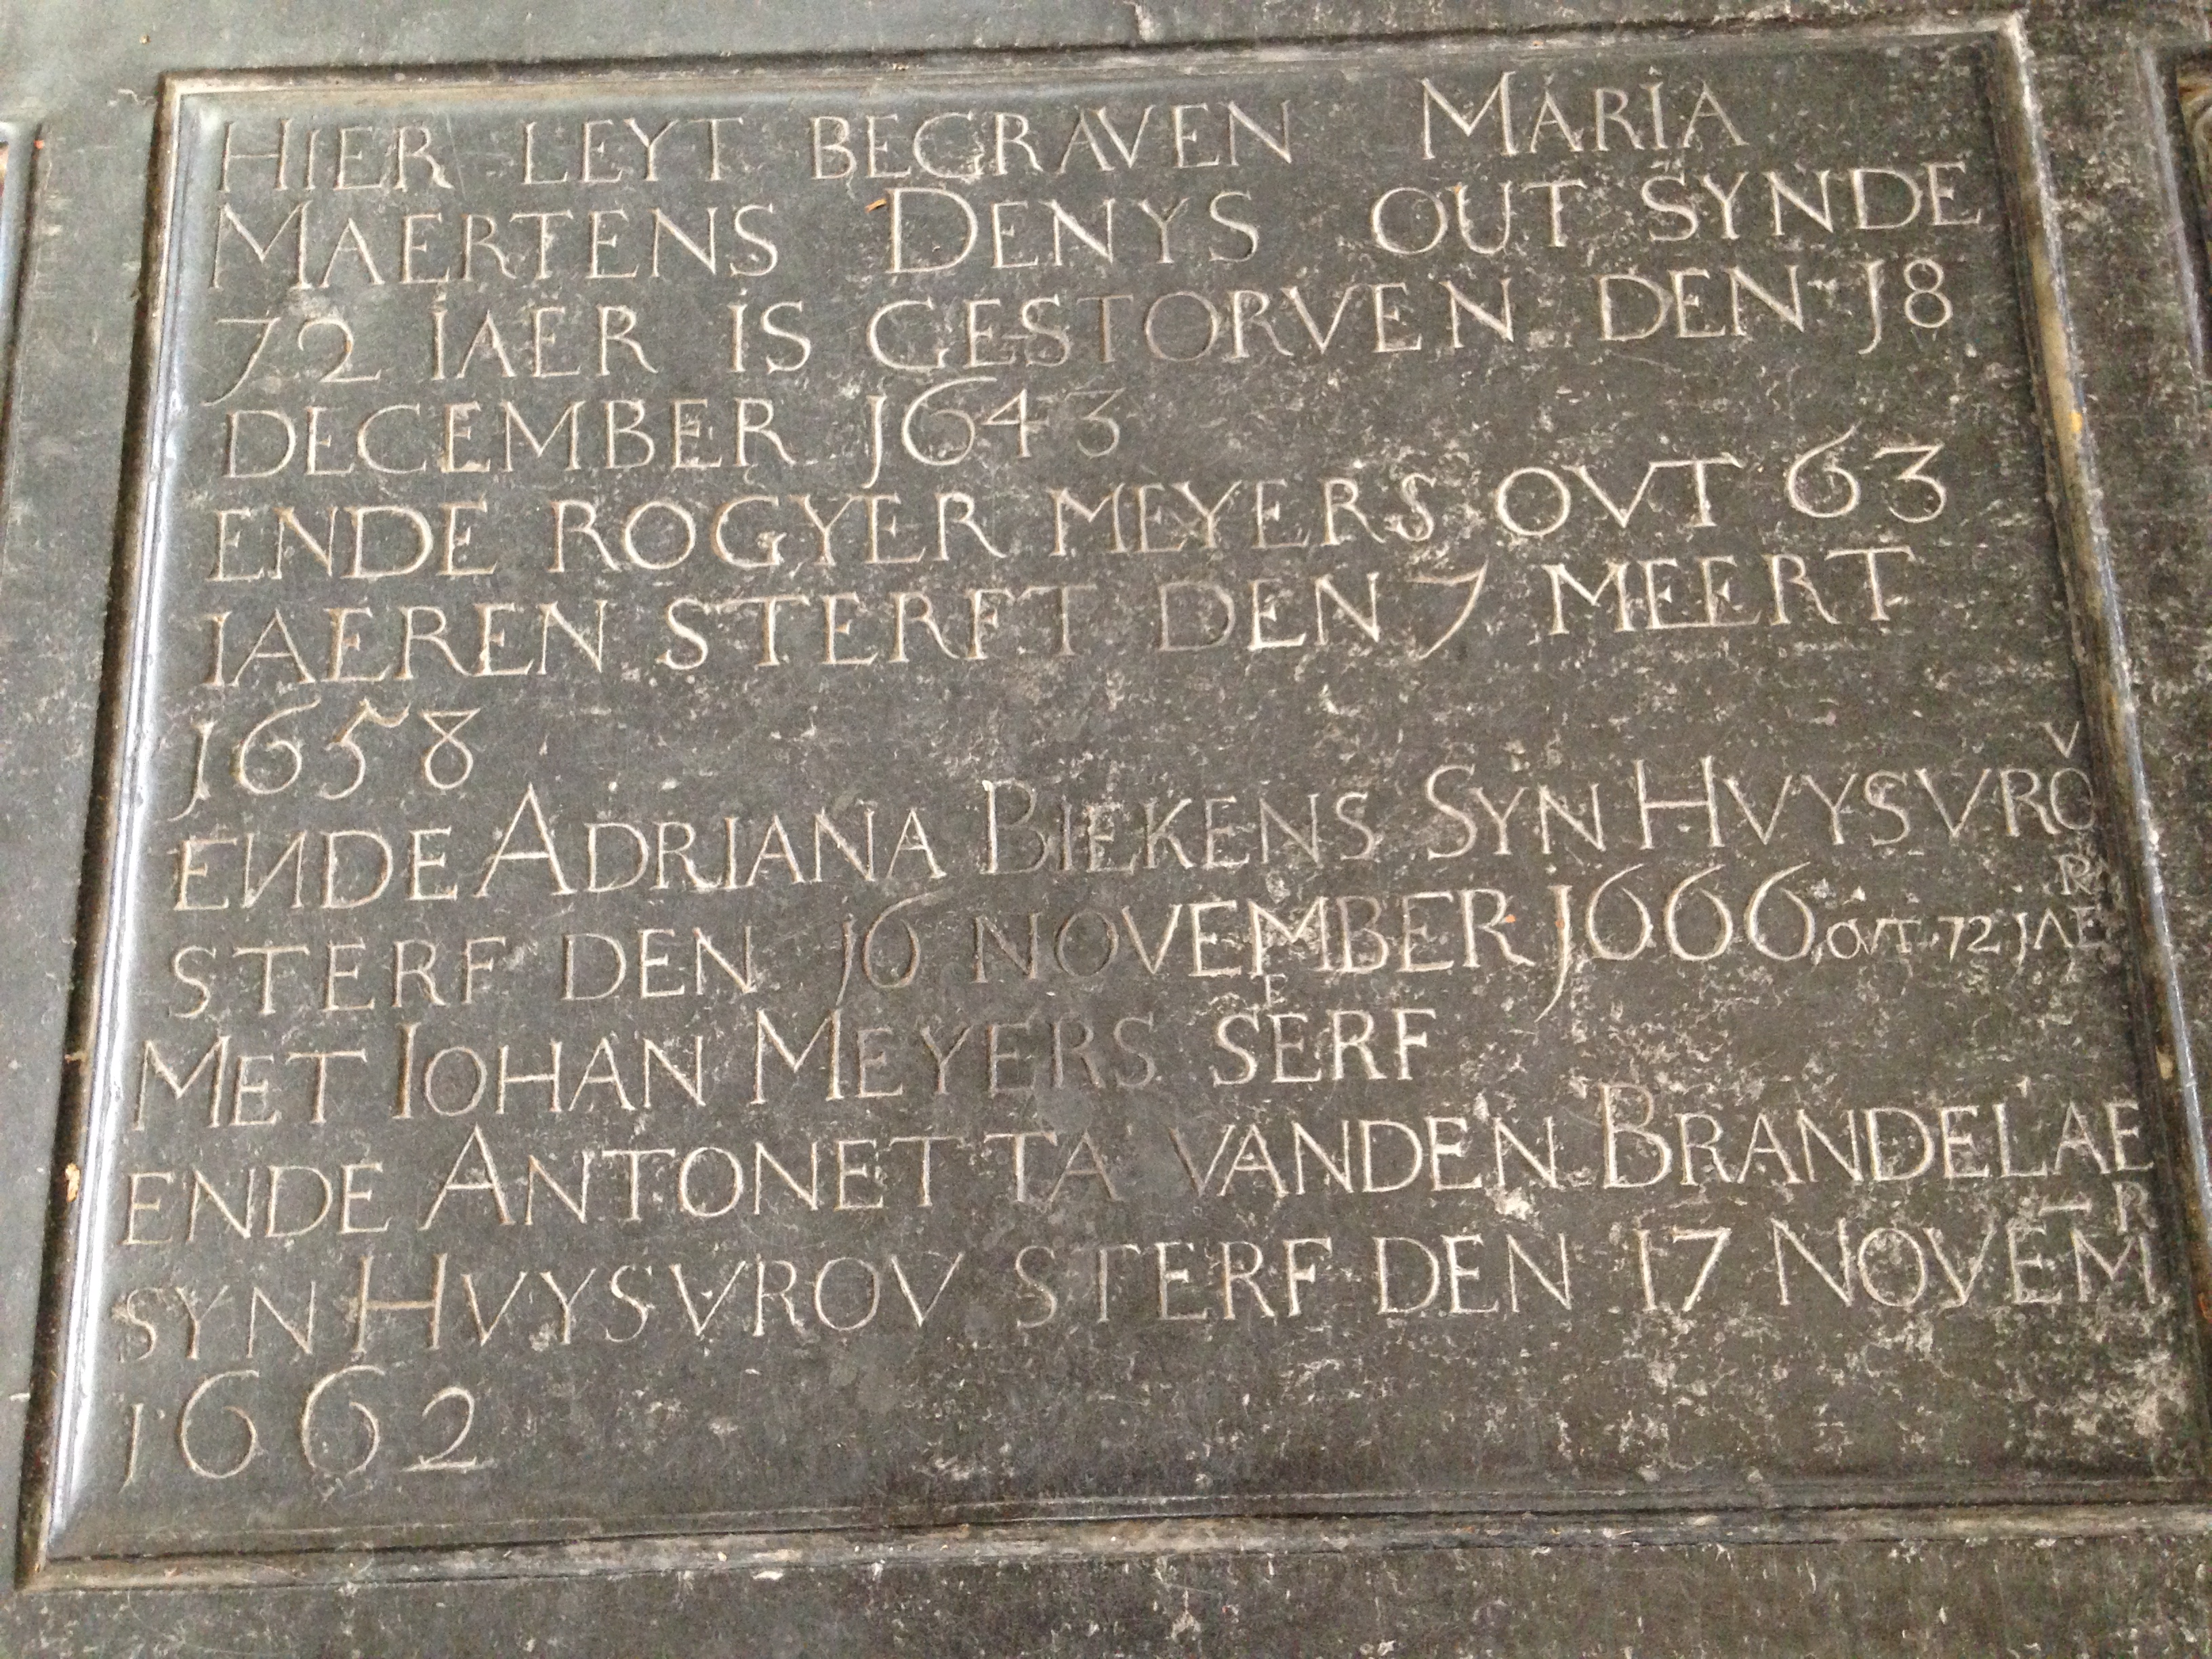 HIER LEYT BEGRAVEN MARIA
MAERTENS DENYS OUT SYNDE
72 IAER IS GESTORVEN DEN J8
DECEMBER J643
ENDE ROGYER MEYERS OVT 63
IAEREN STERFT DEN 7 MEERT
J658
ENDE ADRIANA BIEKENS SYN HVYSVROV
STERF DEN J6 NOVEMBER J666, OVT 72 JAER
MET IOHAN MEYERS SERF
ENDE ANTONETTA VANDEN BRANDELAER
SYN HVYSVROV STERF DEN 17 NOVEM
1662